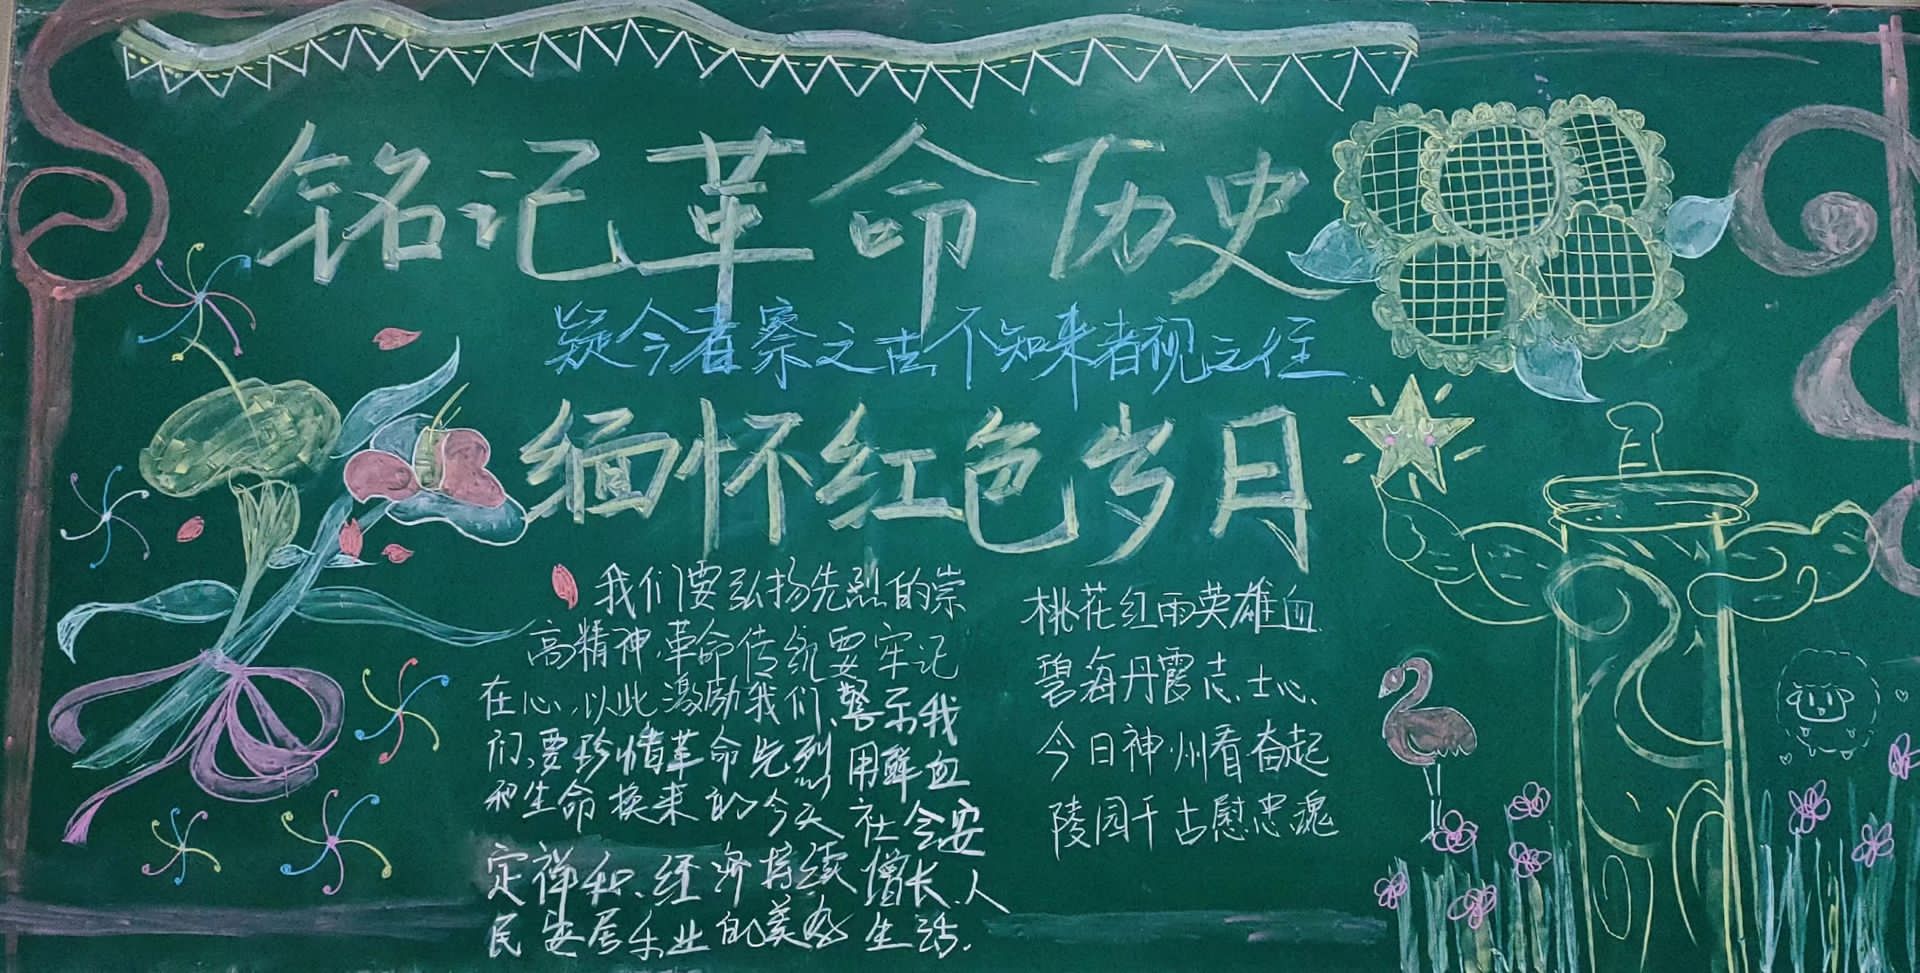 铭记革命历史
疑今者察之古不知来者视之往
缅怀红色岁月
我们要弘扬先烈的崇
高精神,革命传统要牢记
在心,以此激励我们、警示我
们,要珍惜革命先烈用鲜血
和生命换来的今天社会安
定祥和、经济持续增长、人
民安居乐业的美好生活.
桃花红雨英雄血
碧海丹霞志士心、
今日神州看奋起
陵园千古慰忠魂